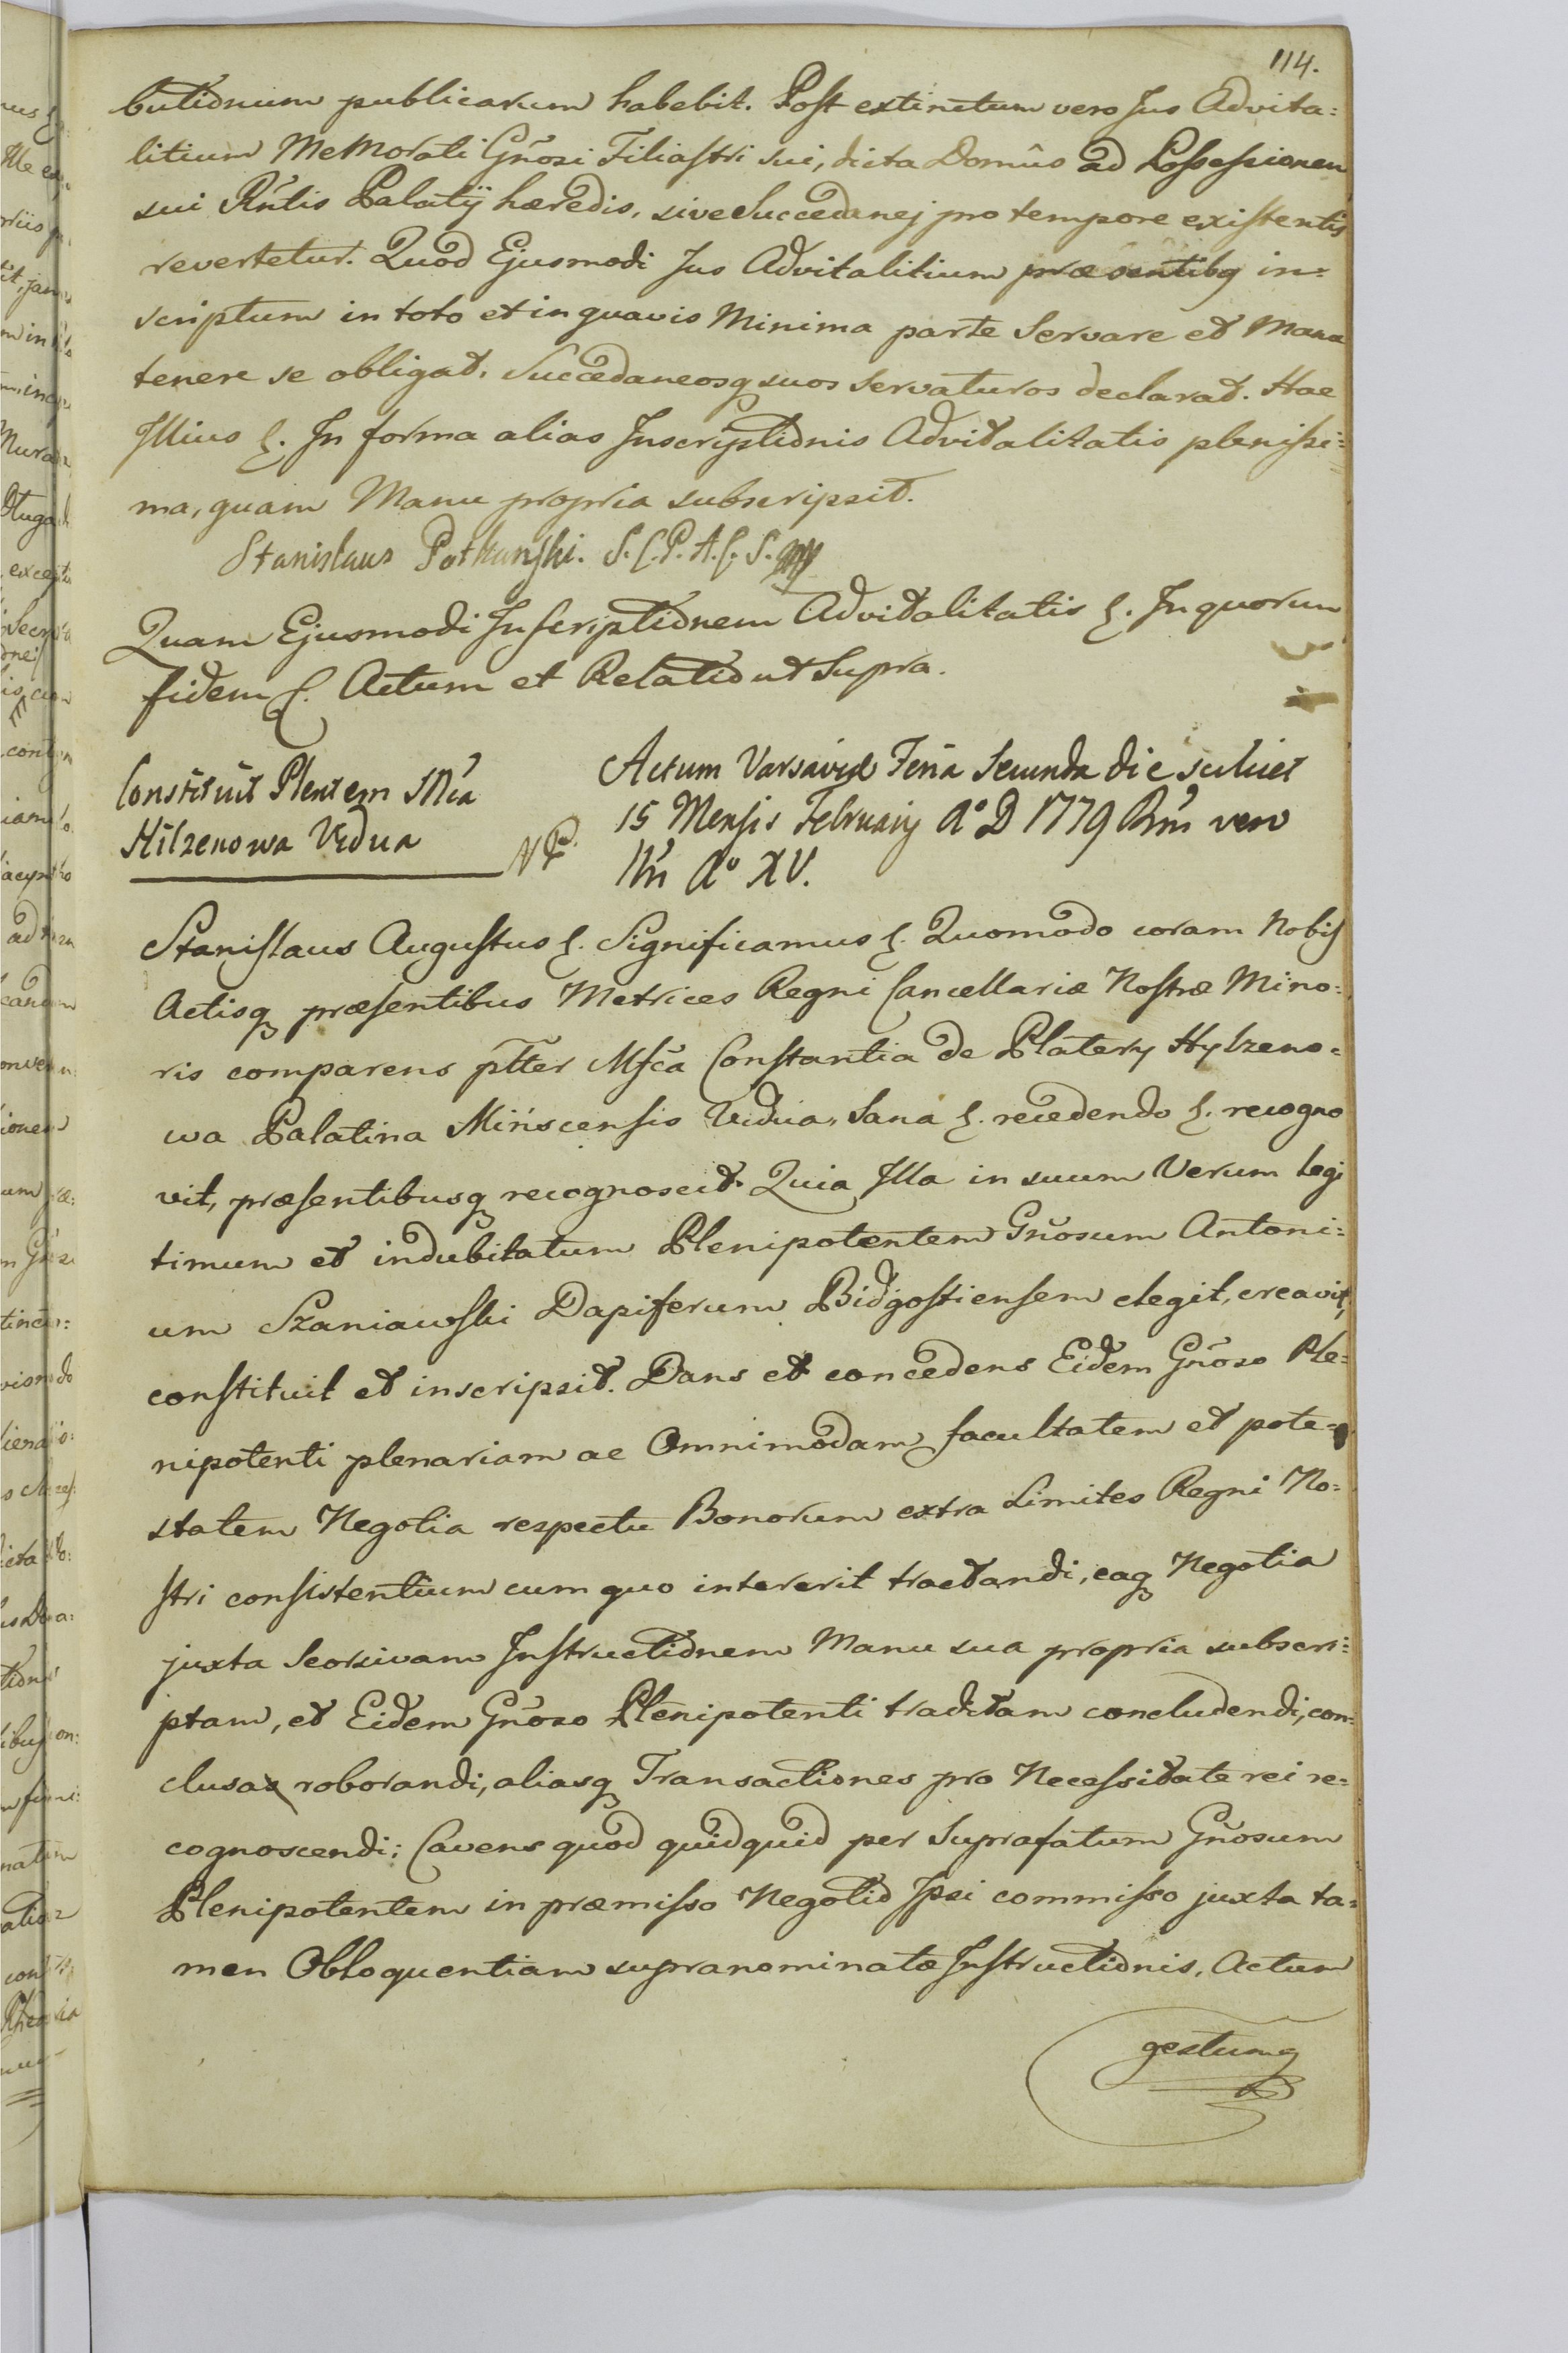 114.
butionum publicarum habebit. Post extinctum vero Jus Advita=
litium Memorati Gñosi Filiastri sui, dicta Domûs ad Possessionem
sui Rñtis Palatij hæredis, sive Succedanej pro tempore existentis
revertetur. Quod Ejusmodi Jus Advitalitium præsentibꝫ in=
scriptum in toto et in quavis Minima parte Servare et Manu
tenere se obligat, Succedaneosqꝫ suos Servaturos declarat. Hac
Illius &. In forma alias Inscriptionis Advitalitatis plenissi=
ma, quam Manu propria subscripsit.
Stanislaus Potkanski. S.C.P.A.C.S. mp
Quam Ejusmodi Inscriptionem Advitalitatis &. In quorum
fidem &. Actum et Relatio ut Supra.
Constituit Plentem Mca
Hilzenowa Vidua
Actum Varsaviæ Feria Secunda die scilicet
15 Mensis February Aº D 1779 Rñi vero
Nri Aº XV.
Stanislaus Augustus &. Significamus &. Quomodo coram Nobis
Actisqꝫ præsentibus Metrices Regni Cancellariæ Nostræ Mino=
ris comparens pltter Mfca Constantia de Platery Hylzeno=
wa Palatina Mińscensis Vidua, Sana &. recedendo &. recogno
vit, præsentibusqꝫ recognoscit. Quia Illa in suum Verum legi
timum et indubitatum Plenipotentem Gñosum Antoni=
um Szaniawski Dapiferum Bidgostiensem elegit, creavit,
constituit et inscripsit. Dans et concedens Eidem Gñoso Ple=
nipotenti plenariam ac Omnimodam facultatem et pote=
statem Negotia respectu Bonorum extra Limites Regni No=
stri consistentium cum quo intererit tractandi, eaqꝫ Negotia
juxta Seorsivam Instructionem Manu sua propria subscri=
ptam, et Eidem Gñoso Plenipotenti traditam concludendi, con=
clusa roborandi, aliasqꝫ Transactiones pro Necessitate rei re=
cognoscendi; Cavens quod quidquid per Suprafatum Gñosum
Plenipotentem in præmisso Negotio Ipsi commisso juxta ta=
men Obloquentiam supranominatæ Instructionis, Actum
gestumqꝫ